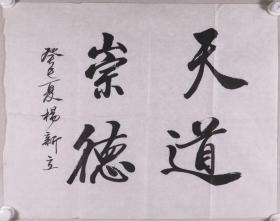 天道
崇德
癸巳夏楊新立